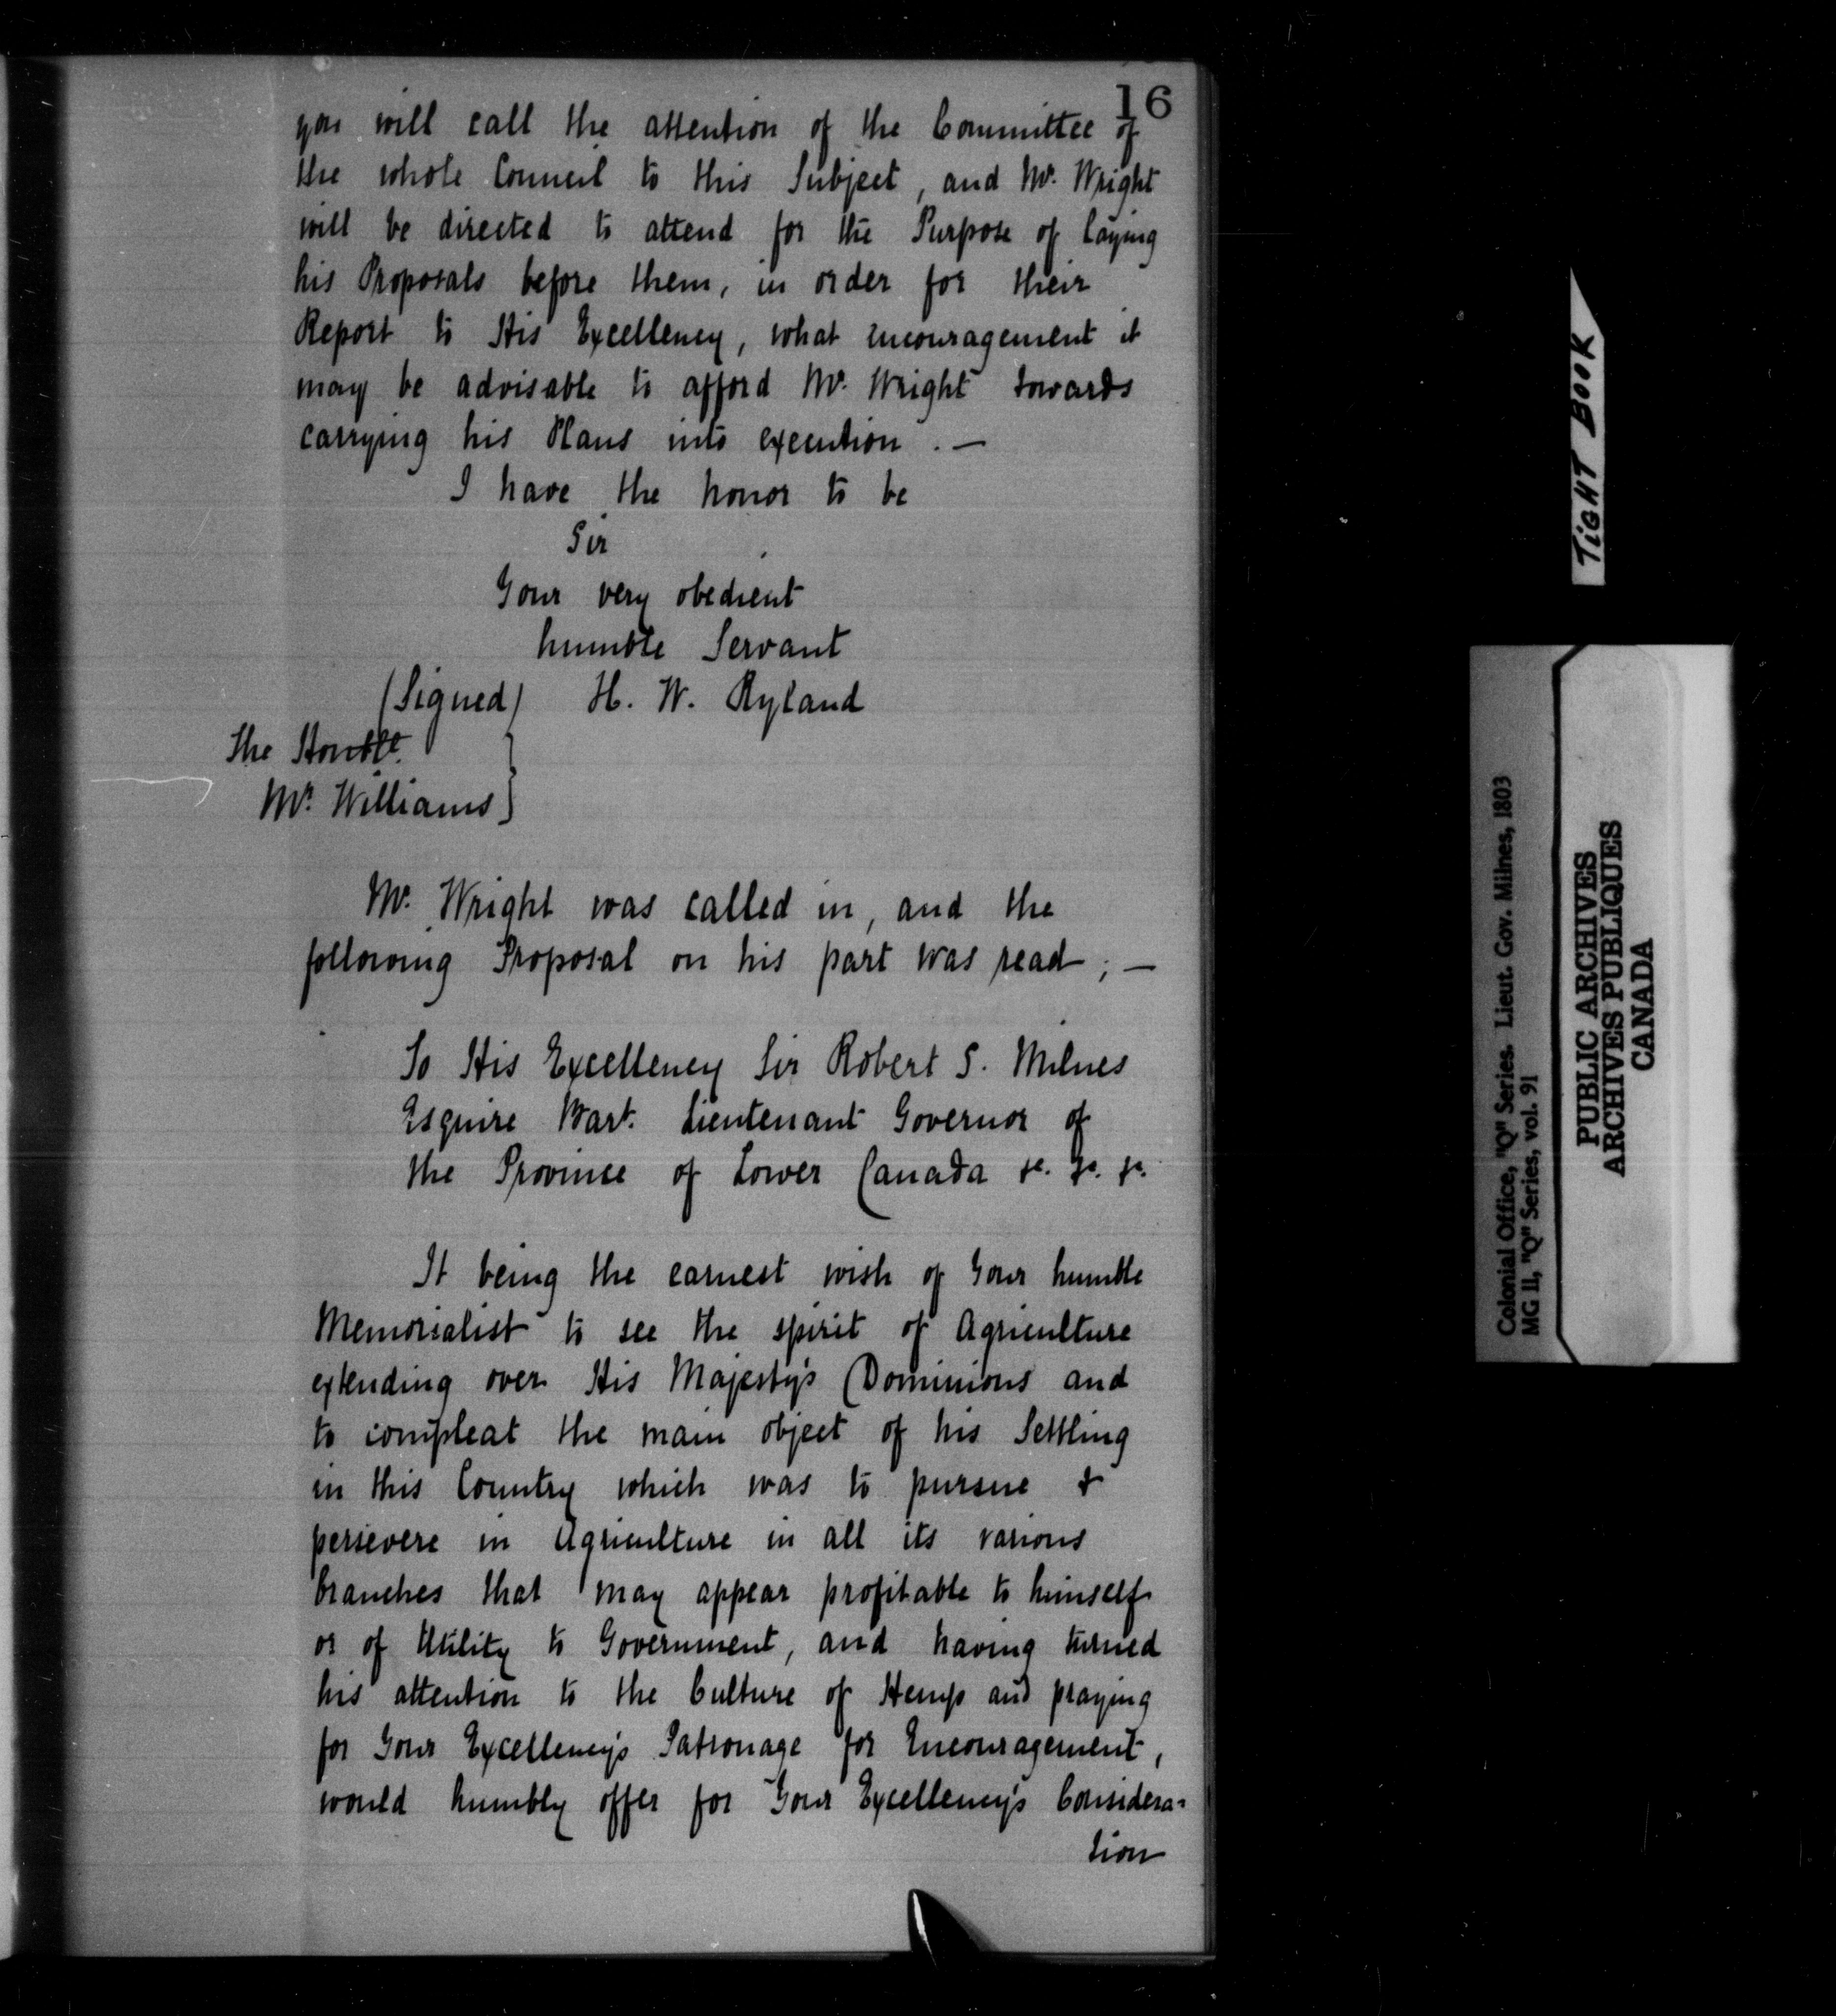 16
you will call the attention of the Committee of
the whole Council to this Subject, and Mr. Wright
will be directed to attend for the Purpose of laying
his Proposals before them, in order for their
Report to His Excellency, what encouragement it
may be advisable to afford Mr. Wright towards
carrying his Plans into execution. —
I have the honor to be
Sir
Your very obedient
humble Servant
(Signed) H. W. Ryland
The Honble.
Mr. Williams }
Mr. Wright was called in, and the
following Proposal on his part was read; —
To His Excellency Sir Robert S. Milnes
Esquire Bart. Lieutenant Governor of
the Province of Lower Canada &c. &c. &c.
It being the earnest wish of Your humble
Memorialist to see the spirit of Agriculture
extending over His Majesty's Dominions and
to compleat the main object of his Settling
in this Country which was to pursue &
persevere in Agriculture in all its various
branches that may appear profitable to himself
or of Utility to Government, and having turned
his attention to the Culture of Hemp and praying
for Your Excellency's Patronage for Encouragement,
would humbly offer for Your Excellency's Considera=
tion
TIGHT BOOK
Colonial Office, "Q" Series. Lieut. Gov. Milnes, 1803
MG 11, "Q" Series, vol. 91
PUBLIC ARCHIVES
ARCHIVES PUBLIQUES
CANADA